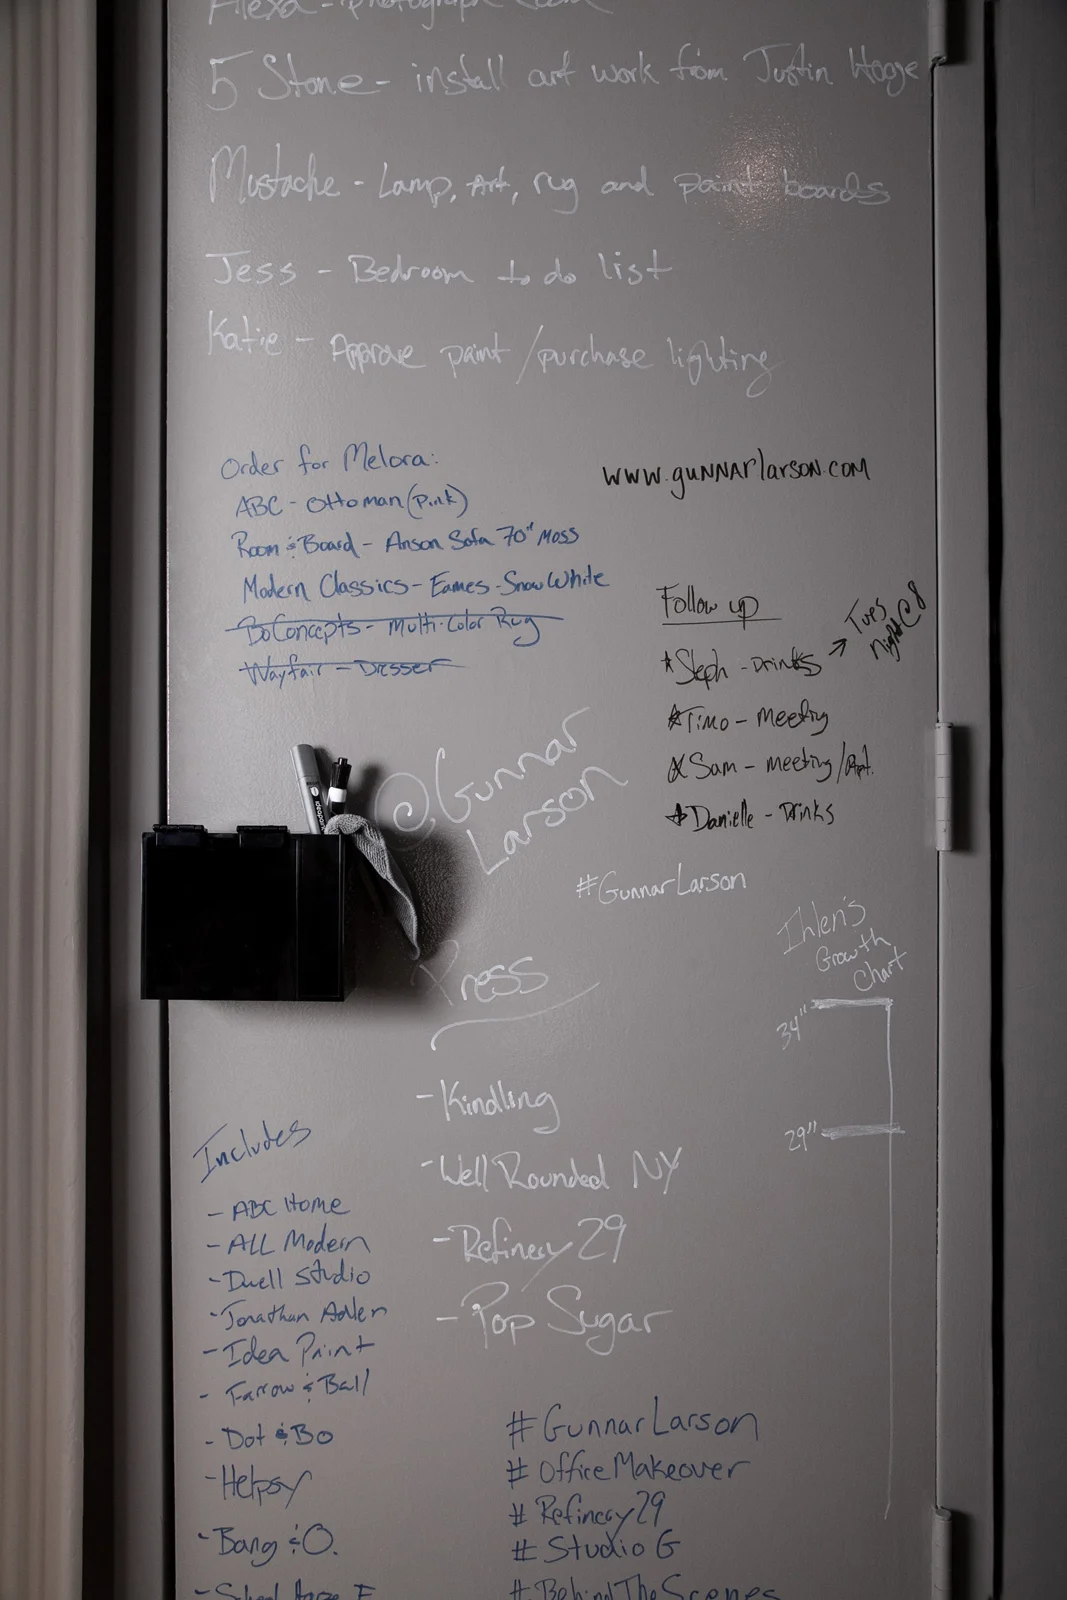 Alexa - photograph
5 Stone - install art work from Justin Hooge
Mustache - Lamp, Art, rug and paint boards
Jess - Bedroom to do list
Katie - Approve paint/purchase lighting
Order for Melora:
ABC - Ottoman (pink)
Room & Board - Anson Sofa 70" Moss
Modern Classics - Eames - Snow White
BoConcepts - Multi-Color Rug
Wayfair - Dresser
www.gunnarlarson.com
Follow up
*Steph - Drinks → Tues night @ 8
*Timo - Meeting
*Sam - meeting/Apt.
*Danielle - Drinks
@Gunnar
Larson
#GunnarLarson
Ihlen's
Growth
Chart
34"
29"
Press
- Kindling
- Well Rounded NY
- Refinery 29
- Pop Sugar
Includes
- ABC Home
- ALL Modern
- Dwell Studio
- Jonathan Adler
- Idea Paint
- Farrow & Ball
- Dot & Bo
- Helpsy
- Bang & O.
- School House E
#GunnarLarson
#OfficeMakeover
#Refinery29
#Studio G
#BehindTheScenes